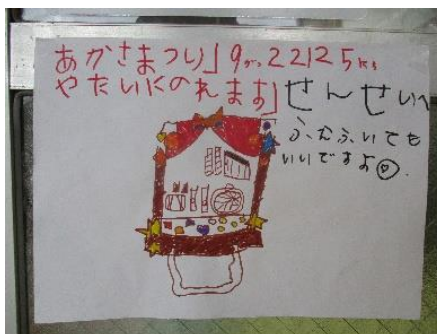 あかさまつり」9がつ22125にち
やたいにのれます」
せんせいへ
ふえふいても
いいですよ